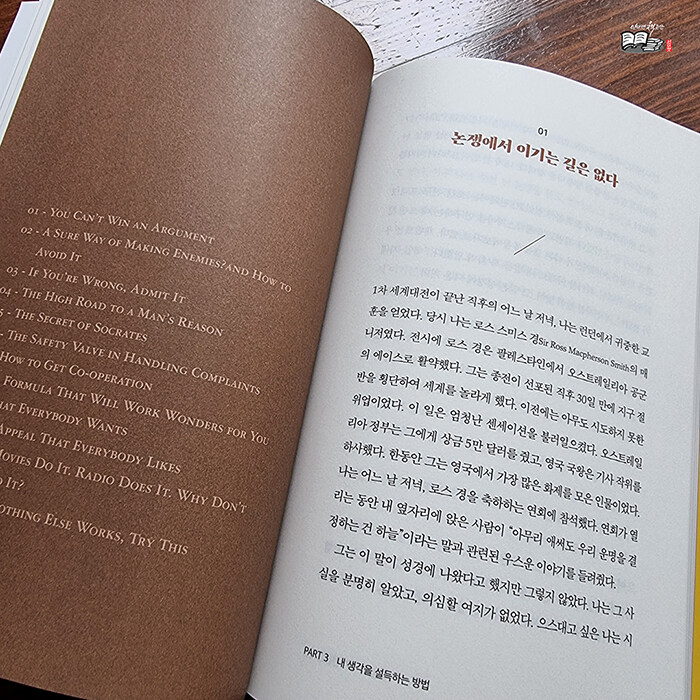 01 - You Can't Win an Argument
02 - A Sure Way of Making Enemies?and How to
Avoid It
03 - If You're Wrong, Admit It
04 - The High Road to a Man's Reason
5 - The Secret of Socrates
- The Safety Valve in Handling Complaints
How to Get Co-operation
Formula That Will Work Wonders for You
hat Everybody Wants
Appeal That Everybody Likes
Movies Do It. Radio Does It. Why Don't
It?
othing Else Works, Try This
01
논쟁에서 이기는 길은 없다
1차 세계대전이 끝난 직후의 어느 날 저녁, 나는 런던에서 귀중한 교
훈을 얻었다. 당시 나는 로스 스미스 경Sir Ross Macpherson Smith의 매
니저였다. 전시에 로스 경은 팔레스타인에서 오스트레일리아 공군
의 에이스로 활약했다. 그는 종전이 선포된 직후 30일 만에 지구 절
반을 횡단하여 세계를 놀라게 했다. 이전에는 아무도 시도하지 못한
위업이었다. 이 일은 엄청난 센세이션을 불러일으켰다. 오스트레일
리아 정부는 그에게 상금 5만 달러를 줬고, 영국 국왕은 기사 작위를
하사했다. 한동안 그는 영국에서 가장 많은 화제를 모은 인물이었다.
나는 어느 날 저녁, 로스 경을 축하하는 연회에 참석했다. 연회가 열
리는 동안 내 옆자리에 앉은 사람이 “아무리 애써도 우리 운명을 결
정하는 건 하늘”이라는 말과 관련된 우스운 이야기를 들려줬다.
그는 이 말이 성경에 나왔다고 했지만 그렇지 않았다. 나는 그 사
실을 분명히 알았고, 의심할 여지가 없었다. 으스대고 싶은 나는 시
PART 3 내 생각을 설득하는 방법